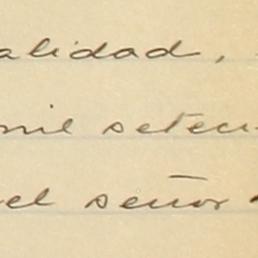 alidad,
mil seten
el señor